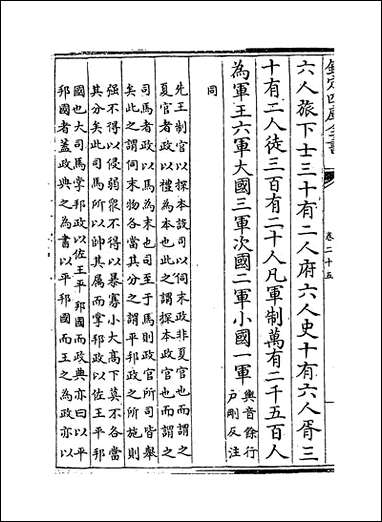 欽定四庫全書
卷二十五
六人旅下士三十有二人府六人史十有六人胥三
十有二人徒三百有二十人凡軍制萬有二千五百人
為軍王六軍大國三軍次國二軍小國一軍
輿音餘行
戶剛反注
同
先王制官以探本設司以伺末政非夏官也而謂之
夏官者政以禮為本也此之謂探本政官也而謂之
司馬者政以馬為末也司至于馬則政官所司皆舉
矣此之謂伺末物各當其分之謂平邦政之所施則
强不得以侵弱眾不得以暴寡小大高下莫不各當
其分矣此司馬所以帥其屬而掌邦政以佐王平邦
國也大司馬掌邦政以佐王平邦國而政典亦曰以平
邦國者蓋政典之為書以平邦國而王之為政亦以